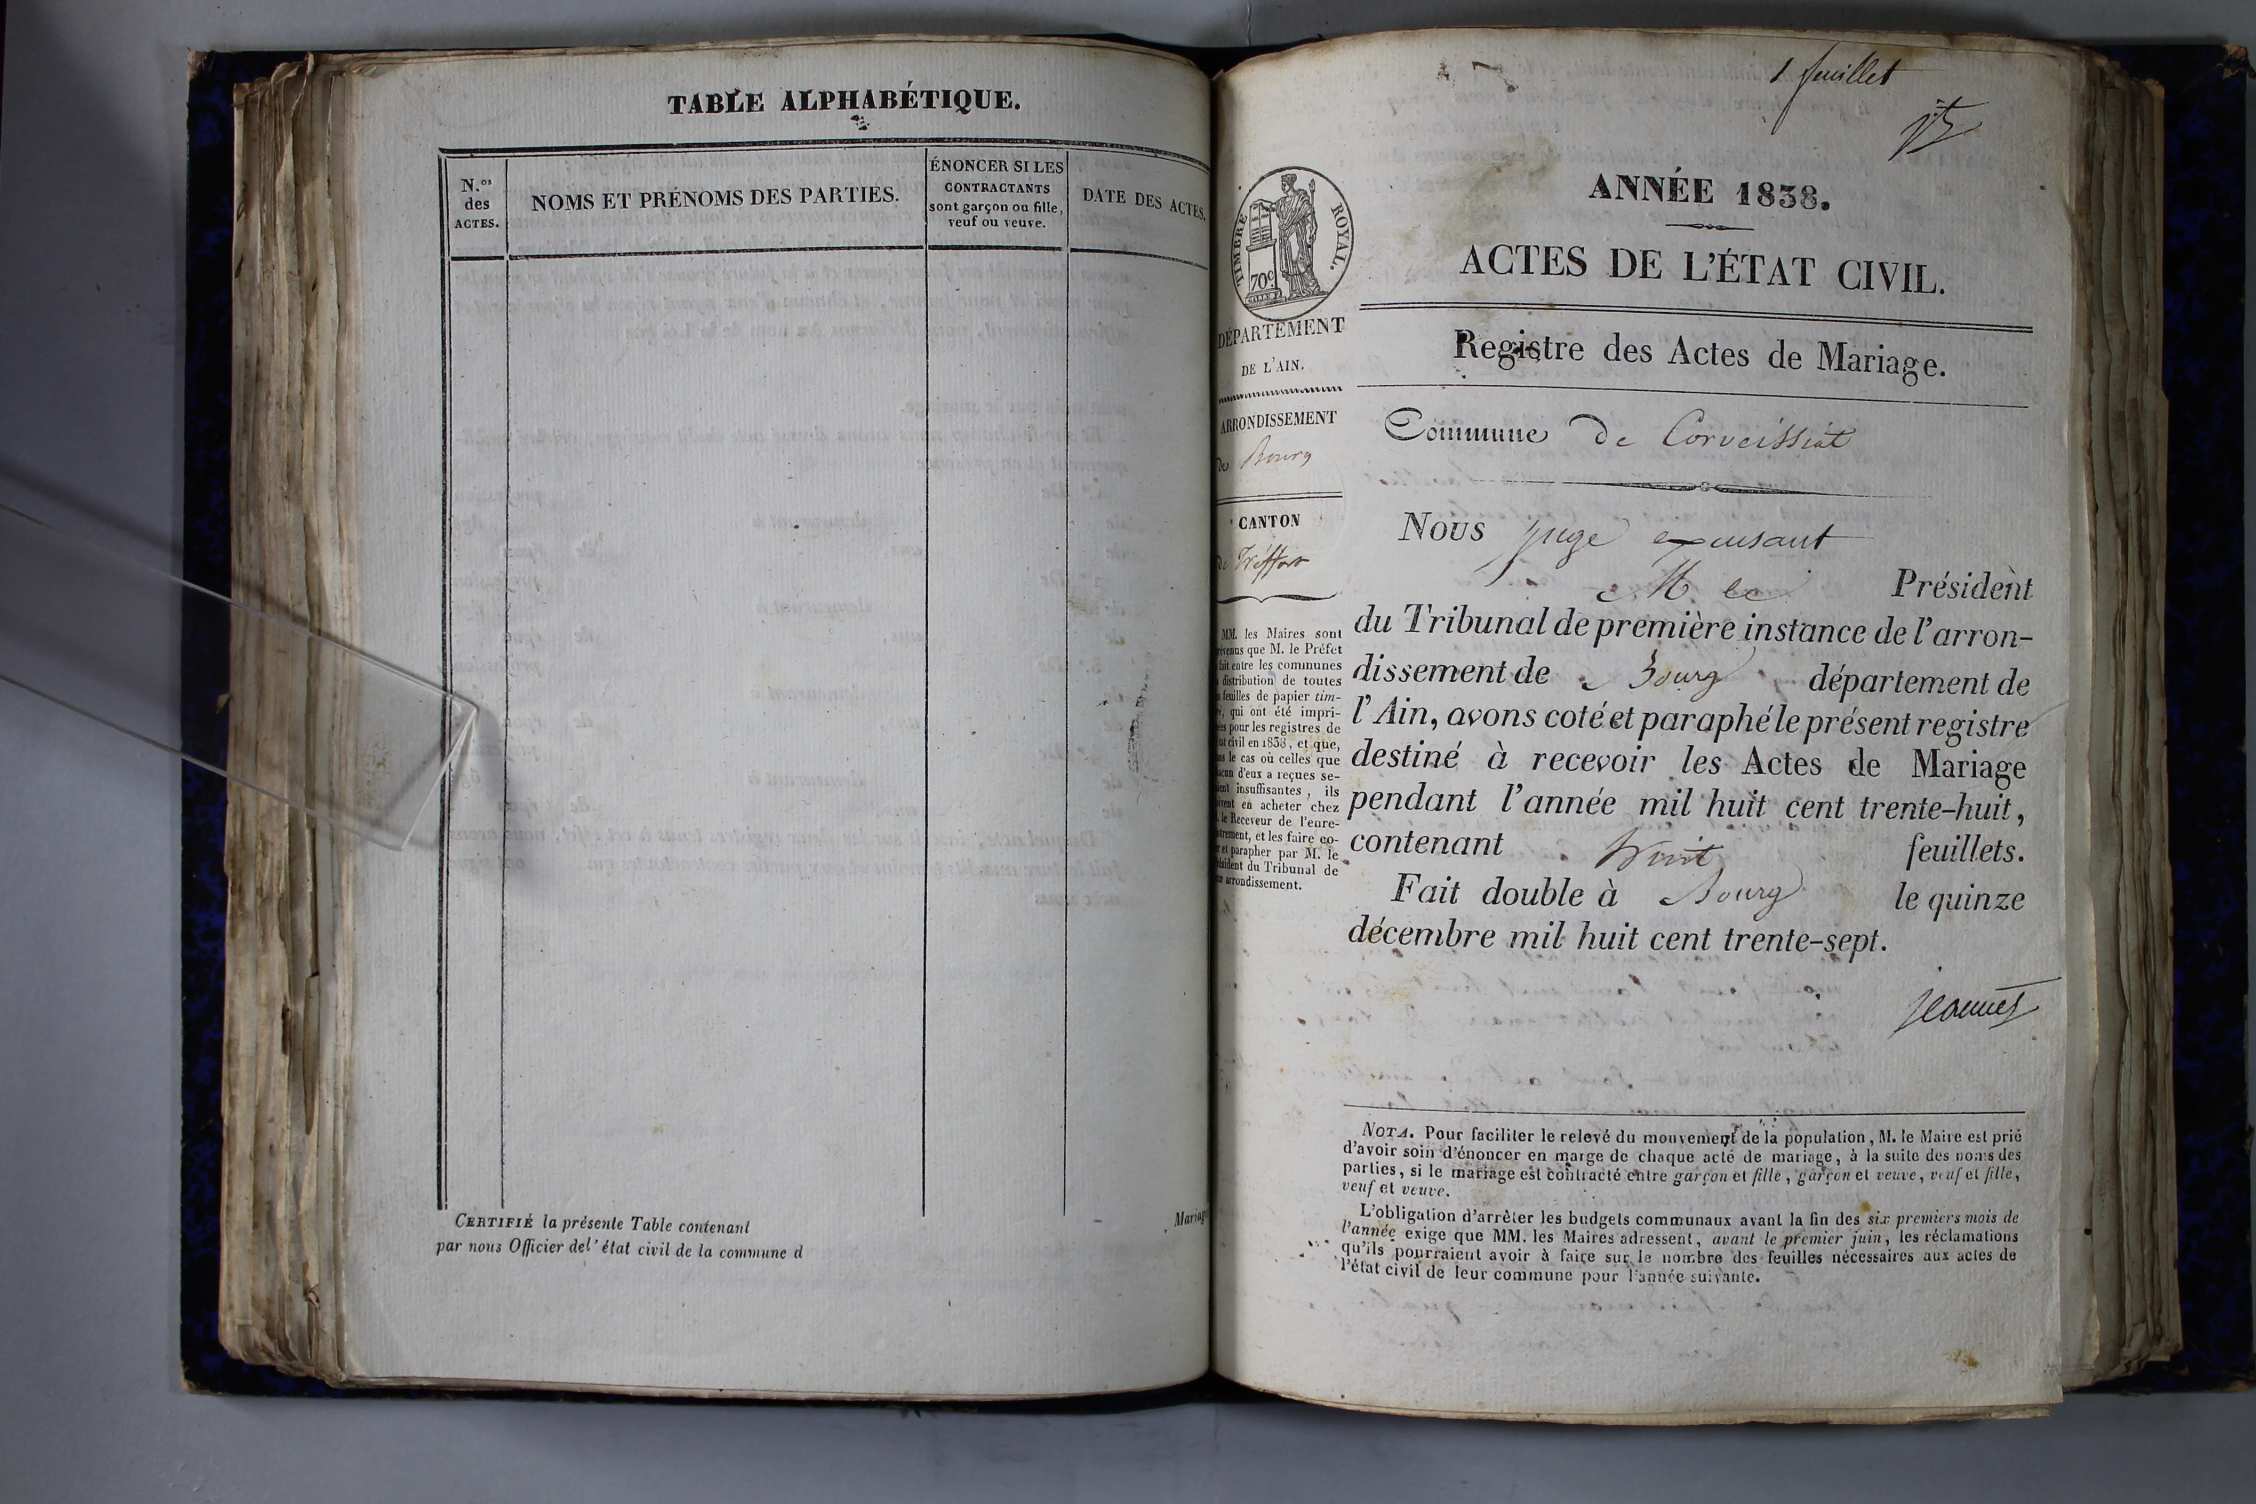 TABLE ALPHABÉTIQUE.
N.os
des
ACTES.
NOMS ET PRÉNOMS DES PARTIES.
ÉNONCER SI LES
CONTRACTANTS
sont garçon ou fille,
veuf ou veuve.
DATE DES ACTES.
CERTIFIÉ la présente Table contenant
par nous Officier del' état civil de la commune d
Mariage
1 feuillet
ANNÉE 1838.
ACTES DE L'ÉTAT CIVIL.
Registre des Actes de Mariage.
Commune de Corveissiat
TIMBRE ROYAL.
70c
DÉPARTEMENT
DE L'AIN.
ARRONDISSEMENT
de Bourg
CANTON
de Tréffort
MM. les Maires sont
que M. le Préfet
fait entre les communes
distribution de toutes
feuilles de papier tim-
qui ont été impri-
pour les registres de
civil en 1838, et que,
le cas où celles que
d'eux a reçues se-
insuffisantes, ils
en acheter chez
le Receveur de l'enre-
et les faire co-
et parapher par M. le
du Tribunal de
arrondissement.
Nous juge
M le Président
du Tribunal de première instance de l'arron-
dissement de Bourg département de
l'Ain, avons coté et paraphé le présent registre
destiné à recevoir les Actes de Mariage
pendant l'année mil huit cent trente-huit,
contenant huit feuillets.
Fait double à Bourg le quinze
décembre mil huit cent trente-sept.
NOTA. Pour faciliter le relevé du mouvement de la population, M. le Maire est prié
d'avoir soin d'énoncer en marge de chaque acte de mariage, à la suite des noms des
parties, si le mariage est contracté entre garçon et fille, garçon et veuve, veuf et fille,
veuf et veuve.
L'obligation d'arrêter les budgets communaux avant la fin des six premiers mois de
l'année exige que MM. les Maires adressent, avant le premier juin, les réclamations
qu'ils pourraient avoir à faire sur le nombre des feuilles nécessaires aux actes de
l'état civil de leur commune pour l'année suivante.